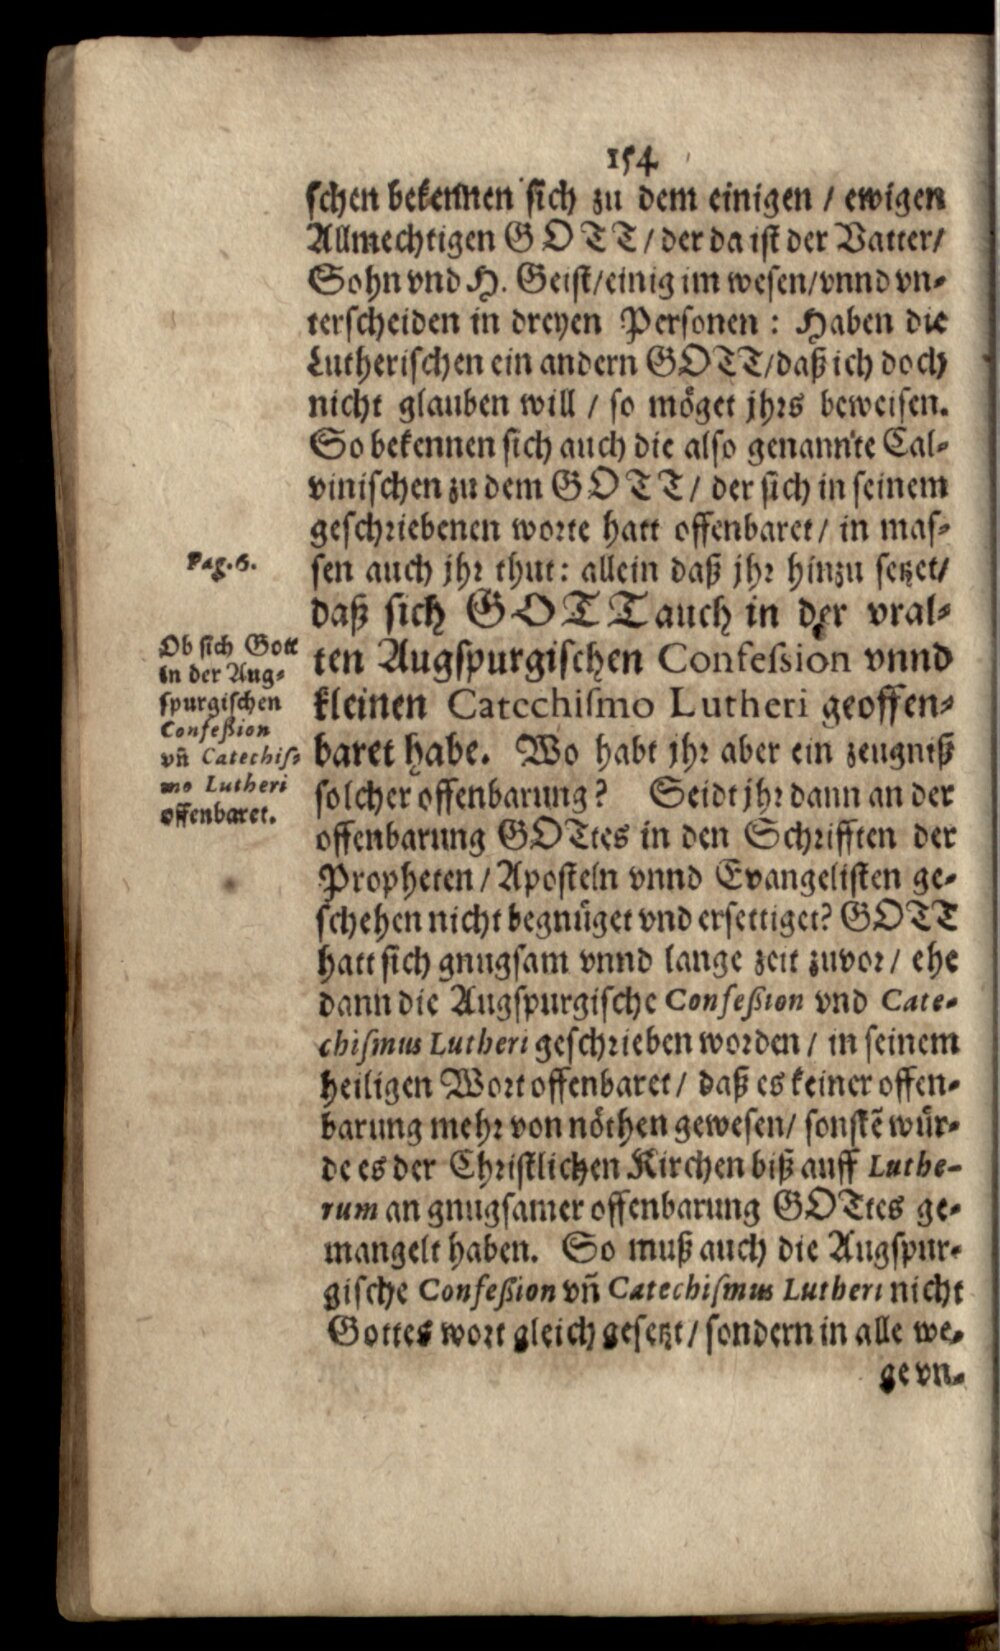 154
schen bekennen sich zu dem einigen / ewigen
Allmechtigen GOTT / der da ist der Vatter /
Sohn vnd H. Geist / einig im wesen / vnnd vn⸗
terscheiden in dreyen Personen : Haben die
Lutherischen ein andern GOTT / daß ich doch
nicht glauben will / so möget jhrs beweisen.
So bekennen sich auch die also genannte Cal⸗
vinischen zu dem GOTT / der sich in seinem
geschriebenen worte hatt offenbaret / in mas⸗
Pag. 6.
sen auch jhr thut : allein daß jhr hinzu setzet /
daß sich GOTT auch in der vral⸗
ten Augspurgischen Confession vnnd
kleinen Catechismo Lutheri geoffen⸗
baret habe. Wo habt jhr aber ein zeugniß
solcher offenbarung ? Seidt jhr dann an der
offenbarung GOTtes in den Schrifften der
Propheten / Aposteln vnnd Evangelisten ge⸗
schehen nicht begnüget vnd ersettiget? GOTT
hatt sich gnugsam vnnd lange zeit zuvor / ehe
dann die Augspurgische Confeßion vnd Cate⸗
chismus Lutheri geschrieben worden / in seinem
heiligen Wort offenbaret / daß es keiner offen⸗
barung mehr von nöthen gewesen / sonstē wür⸗
de es der Christlichen Kirchen biß auff Luthe-
rum an gnugsamer offenbarung GOTtes ge⸗
mangelt haben. So muß auch die Augspur⸗
gische Confeßion vñ Catechismus Lutheri nicht
Gottes wort gleich gesetzt / sondern in alle we⸗
ge vn⸗
Ob sich Gott
in der Aug⸗
spurgischen
Confeßion
vñ Catechis⸗
mo Lutheri
offenbaret.